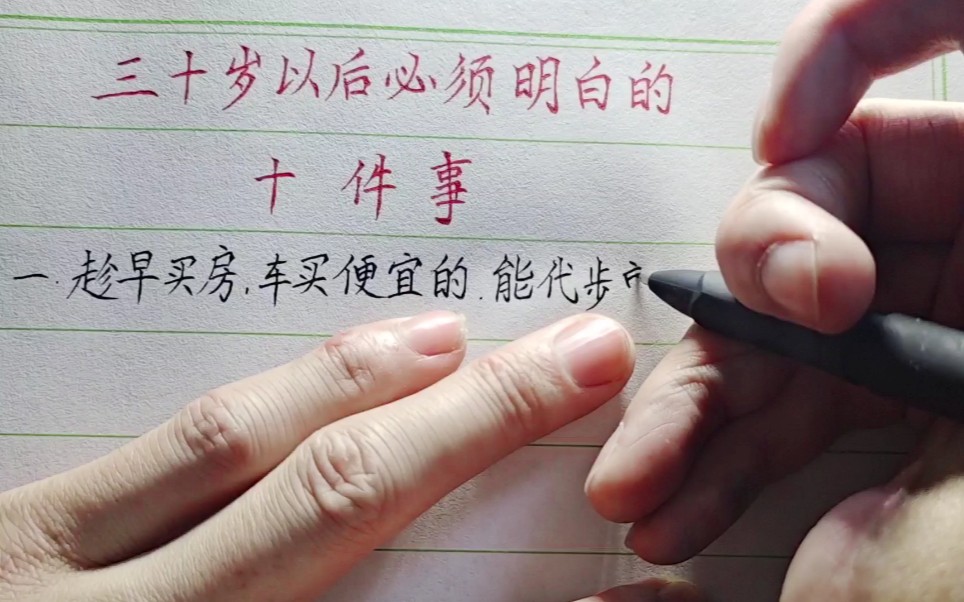 三十岁以后必须明白的
十件事
一.趁早买房,车买便宜的.能代步